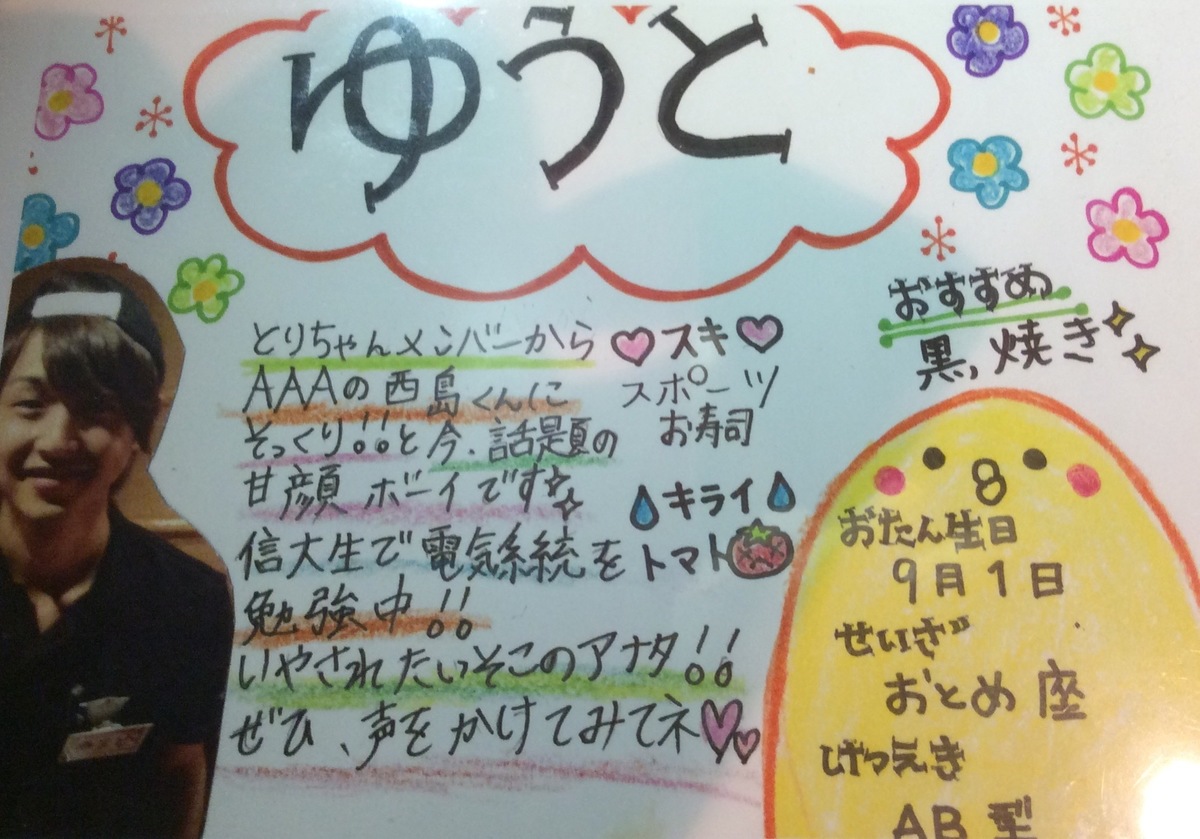 ゆうと
とりちゃんメンバーから
AAAの西島くんに
そっくり!!と今、話題の
甘顔ボーイです
信大生で電気系統を
勉強中!!
いやされたいそこのアナタ!!
ぜひ、声をかけてみてネ
スキ
スポーツ
お寿司
キライ
トマト
おすすめ
黒焼き
おたん生日
9月1日
せいざ
おとめ座
けつえき
AB型